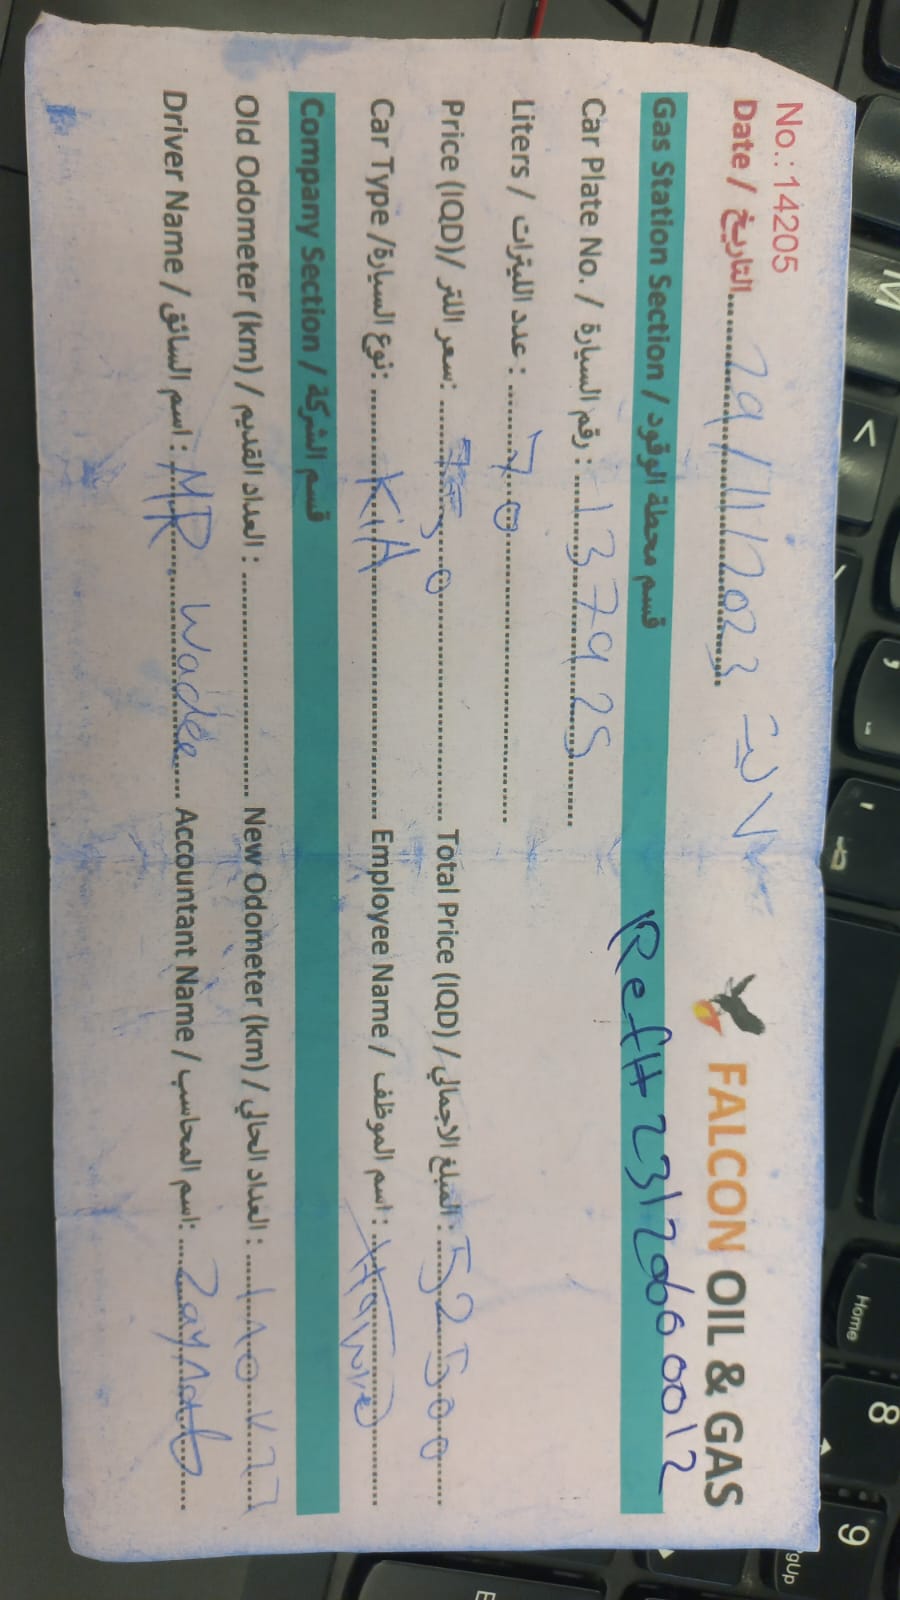 No.: 14205
Date / التاريخ 29/11/2023
FALCON OIL & GAS
Gas Station Section / قسم محطة الوقود Ref# 2312060012
Car Plate No. / رقم السيارة : 137925
Liters / عدد الليترات : 70
Price (IQD)/ سعر اللتر: Total Price (IQD) / المبلغ الاجمالي : 52500
Car Type /نوع السيارة: KiA Employee Name / اسم الموظف :
Company Section / قسم الشركة
Old Odometer (km) / العداد القديم : New Odometer (km) / العداد الحالي :
Driver Name / اسم السائق : MR Wadee Accountant Name / اسم المحاسب:
Home
8
9
M